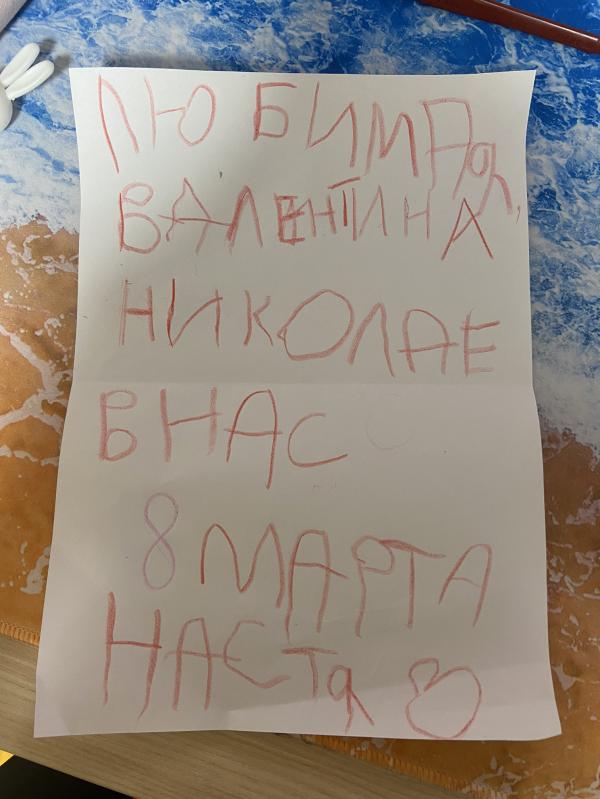 ЛЮБИМАЯ
ВАЛЕНТИНА,
НИКОЛАЕ
ВНАС
8 МАРТА
НАСТЯ